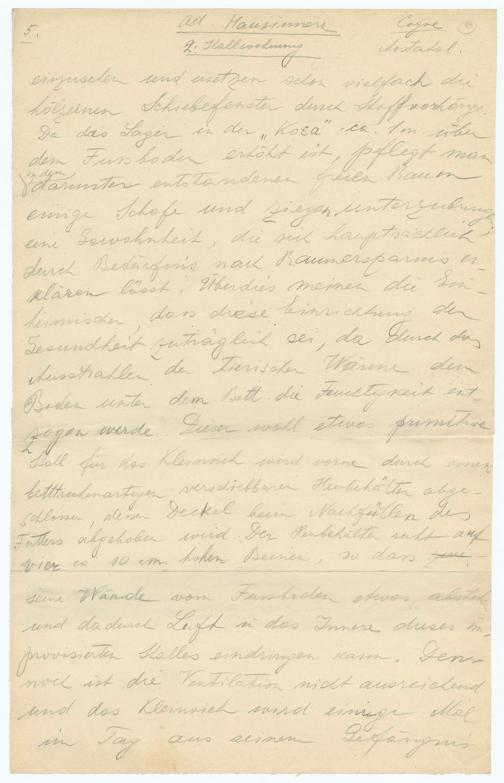 5. Ad. Hausinnere Cogne
2. Stallwohnung Aostatal.
einzusehen und ersetzen schon vielfach die
hölzernen Schiebefenster durch Stoffvorhänge.
Da das Lager in der „Koca" ca. 1 m über
dem Fussboden erhöht ist, pflegt man
in dem
darunter entstandenen freien Raum
einige Schafe und Ziegen unterzubringen,
eine Gewohnheit, die sich hauptsächlich
durch Bedürfnis nach Raumersparnis er-
klären lässt. Überdies meinen die Ein-
heimischen, dass diese Einrichtung der
Gesundheit zuträglich sei, da durch das
Ausstrahlen der tierischen Wärme dem
Boden unter dem Bett die Feuchtigkeit ent-
zogen werde. Dieser wohl etwas primitive
Stall für das Kleinvieh wird vorne durch einen
betttruhenartigen verschiebbaren Heubehälter abge-
schlossen, dessen Deckel beim Nachfüllen des
Futters abgehoben wird. Der Heubehälter ruht auf
vier ca 10 cm hohen Beinen, so dass
seine Wände vom Fussboden etwas abstehen
und dadurch Luft in das Innere dieses im-
provisierten Stalles eindringen kann. Den-
noch ist die Ventilation nicht ausreichend
und das Kleinvieh wird einige Mal
im Tag aus seinem Gefängnis